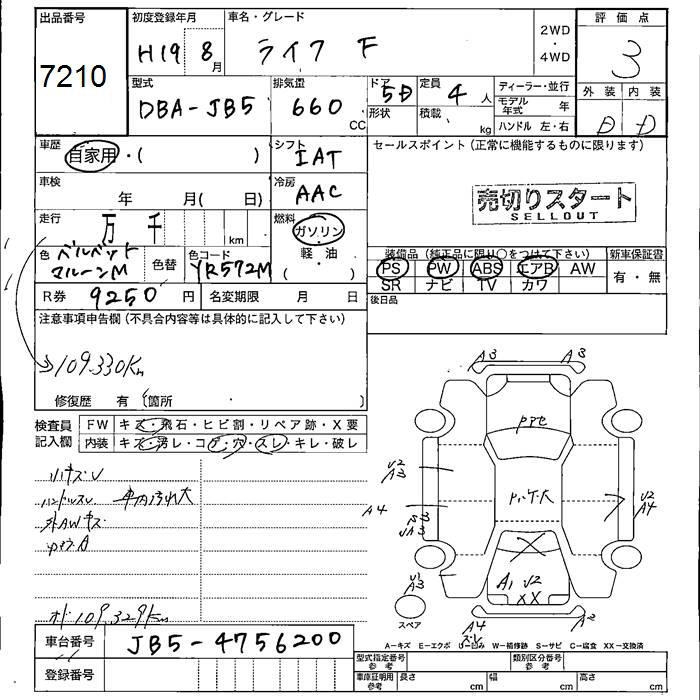 出品番号
7210
初度登録年月
H19 8月
車名・グレード
ライフ F
2WD
・
4WD
評価点
3
型式
DBA-JB5
排気量
660 CC
ドア 5D
形状
定員 4 人
積載 kg
ディーラー・並行
モデル年式 年
ハンドル 左・右
外装 内装
D D
車歴
自家用・( )
シフト
IAT
セールスポイント(正常に機能するものに限ります)
売切りスタート
SELLOUT
車検
年 月( 日)
冷房
AAC
走行
万 千 km
燃料
ガソリン
軽・油
( )
色 ベルベットマルーンM
色替
色コード
YR572M
装備品(純正品に限り○をつけて下さい)
PS PW ABS エアB AW
SR ナビ TV カワ
新車保証書
有・無
R券 9250 円
名変期限 月 日
後日品
注意事項申告欄(不具合内容等は具体的に記入して下さい)
109.330Km
修復歴 有(箇所 )
検査員記入欄
FW キズ・飛石・ヒビ割・リペア跡・X要
内装 キズ・汚レ・コゲ・穴・スレ・キレ・破レ
ハンドルスレ 車内汚れ大
外AWキズ
オド109,329Km
A3 A3
U2
A3
A4
U2
A4
A3
A1 U2
XX
スペア
A4
A2
A-キズ E-エクボ U-凹み W-補修跡 S-サビ C-腐食 XX-交換済
車台番号
JB5-4756200
登録番号
型式指定番号 参考
類別区分番号 参考
車庫証明用 参考
長さ cm
幅 cm
高さ cm